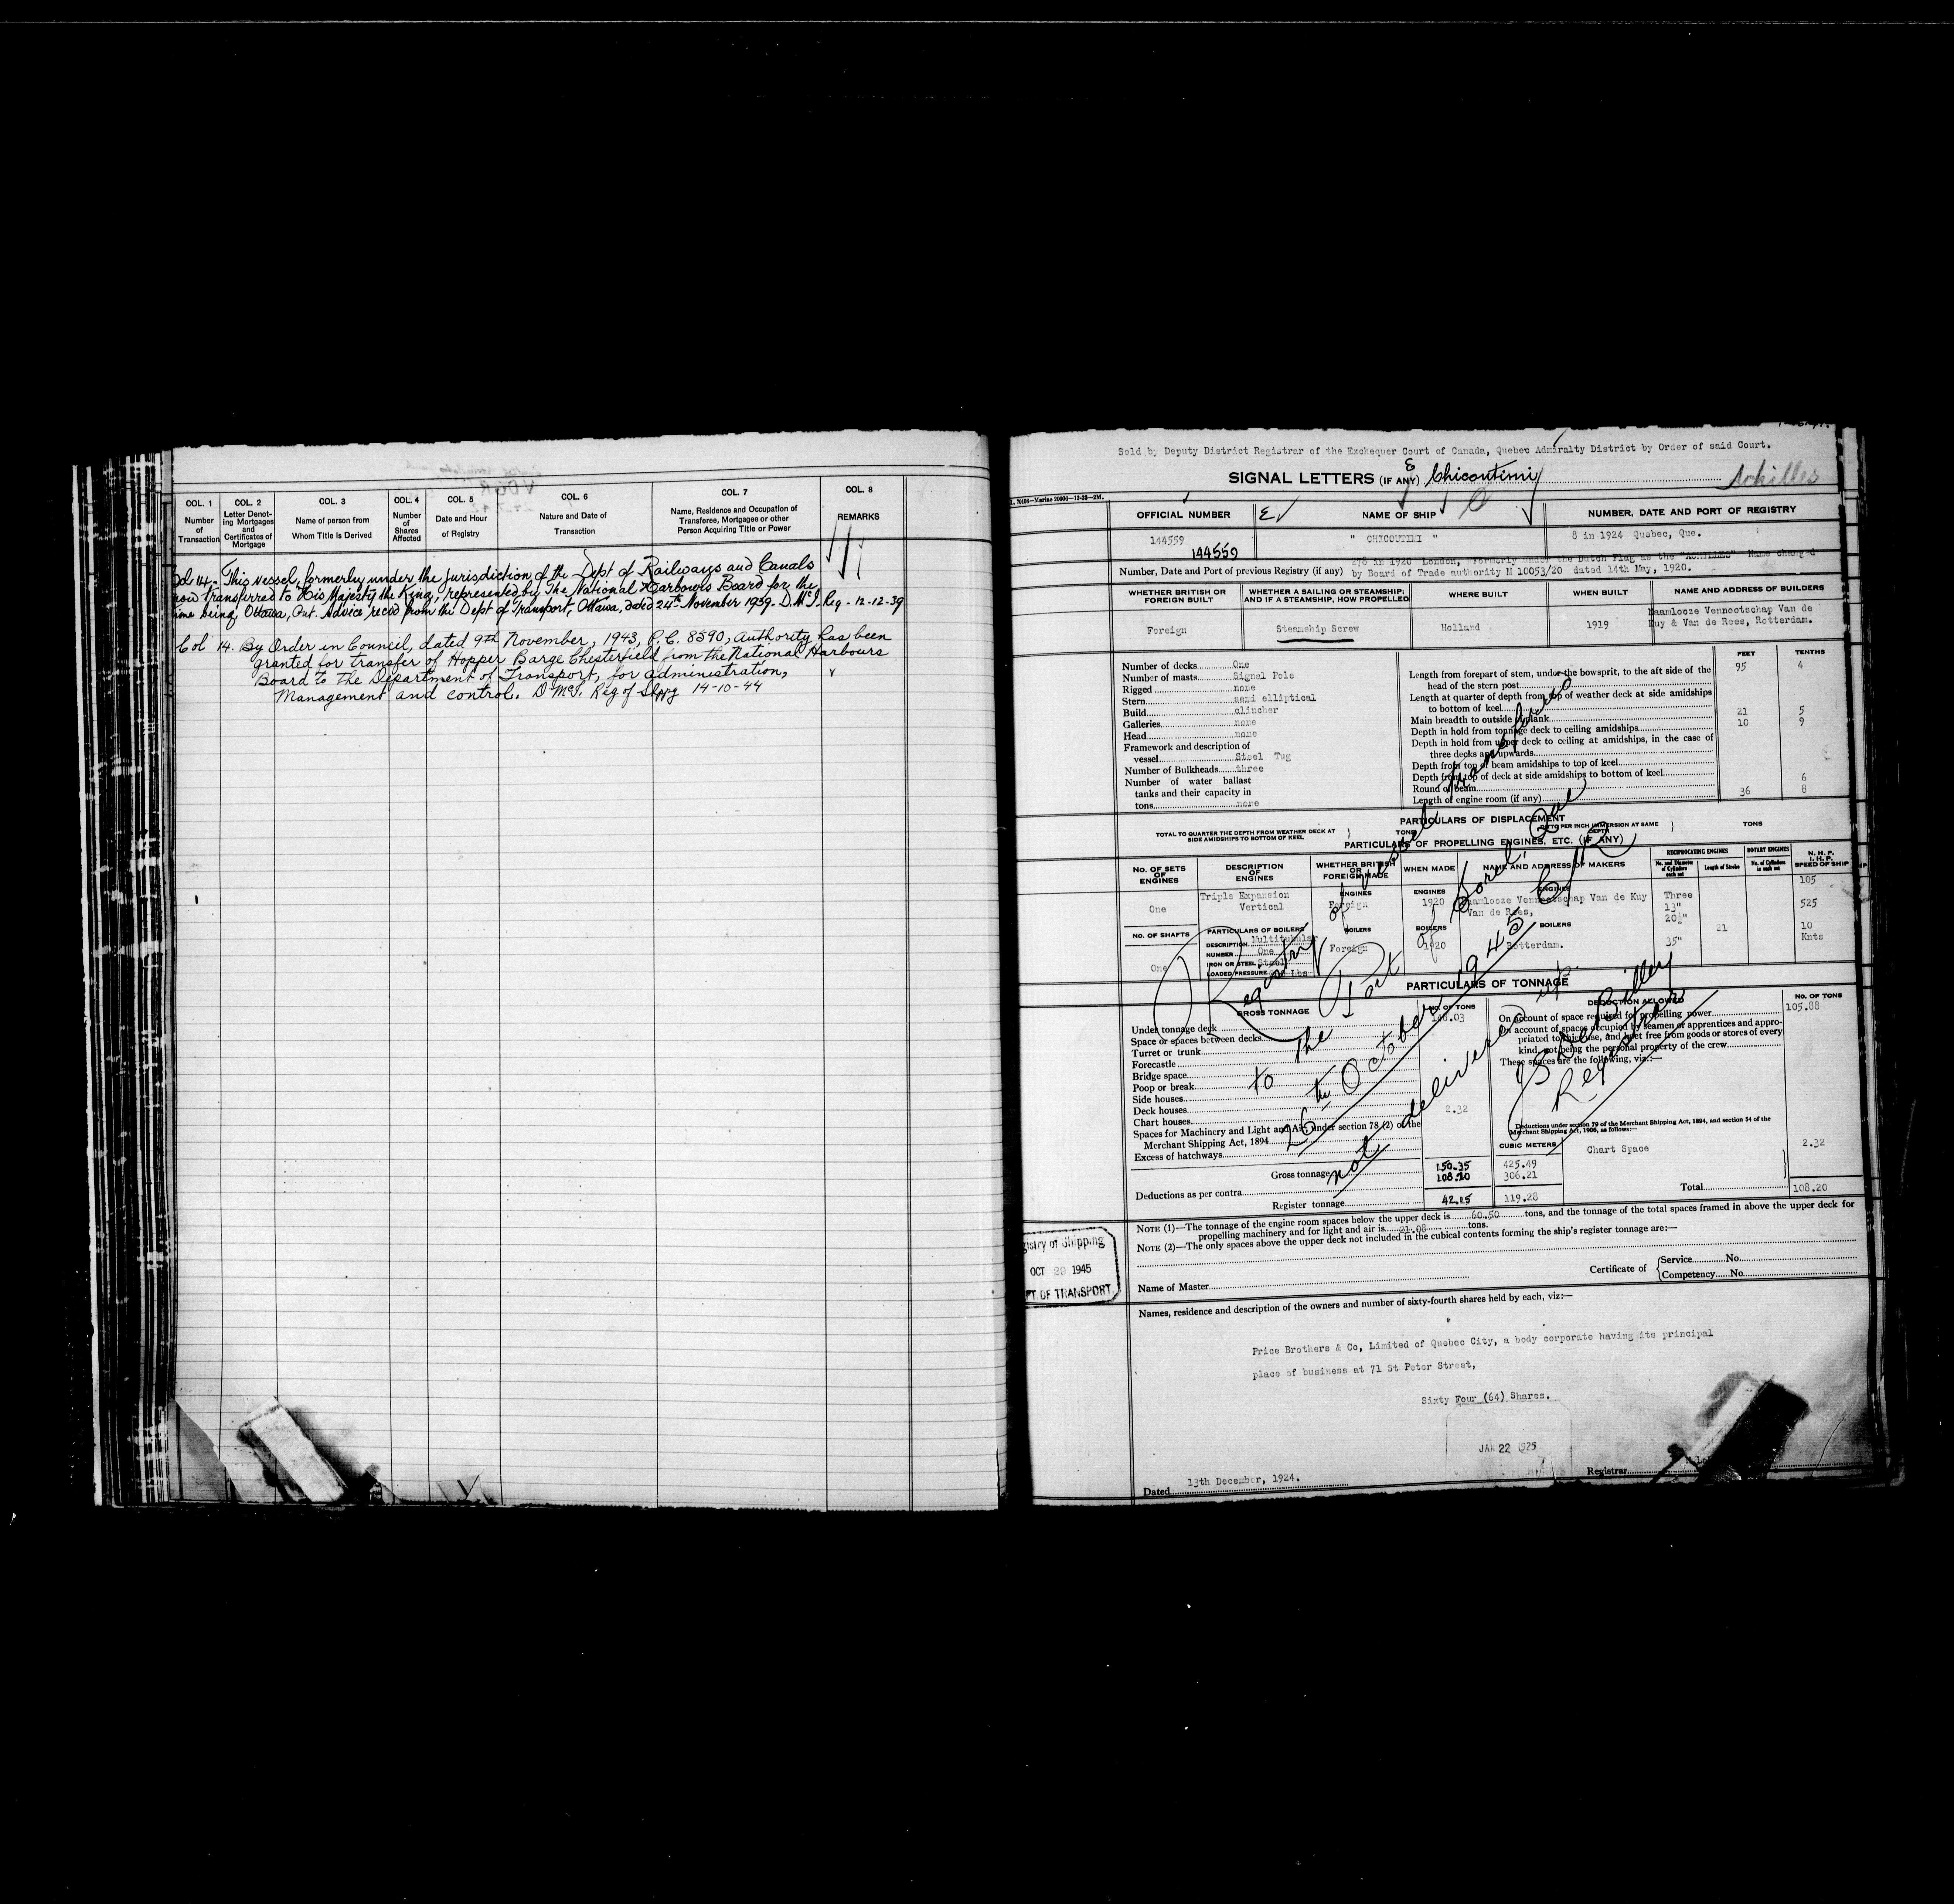 COL. 1
Number
of
Transaction
COL. 2
Letter Denot-
ing Mortgages
and
Certificates of
Mortgage
COL. 3
Name of person from
Whom Title is Derived
COL. 4
Number
of
Shares
Affected
COL. 5
Date and Hour
of Registry
COL. 6
Nature and Date of
Transaction
COL. 7
Name, Residence and Occupation of
Transferee, Mortgagee or other
Person Acquiring Title or Power
COL. 8
REMARKS
Col. 14 - This vessel, formerly under the jurisdiction of the Dept of Railways and Canals
now transferred to His Majesty the King, represented by The National Harbours Board for the
time being, Ottawa, Ont. Advice recd from the Dept of Transport, Ottawa, dated 24th November 1939. D McI. Reg - 12-12-39
Col 14. By Order in Council, dated 9th November, 1943, P.C. 8590, authority has been
granted for transfer of Hopper Barge Chesterfield from the National Harbours
Board to the Department of Transport, for administration,
Management and control. D McI. Reg of Shpg 14-10-44
Sold by Deputy District Registrar of the Exchequer Court of Canada, Quebec Admiralty District by Order of said Court.
SIGNAL LETTERS (IF ANY) Chicoutimi
Achilles
OFFICIAL NUMBER
NAME OF SHIP
NUMBER, DATE AND PORT OF REGISTRY
144559
144559
" CHICOUTIMI "
8 in 1924 Quebec, Que.
Number, Date and Port of previous Registry (if any) 278 in 1920 London, Formerly under the Dutch Flag as the "ACHILLES" Name changed
by Board of Trade authority M 10053/20 dated 14th May, 1920.
WHETHER BRITISH OR
FOREIGN BUILT
WHETHER A SAILING OR STEAMSHIP;
AND IF A STEAMSHIP, HOW PROPELLED
WHERE BUILT
WHEN BUILT
NAME AND ADDRESS OF BUILDERS
Foreign
Steamship Screw
Holland
1919
Naamlooze Vennootschap Van de
Kuy & Van de Rees, Rotterdam.
FEET
TENTHS
Number of decks One
Number of masts Signel Pole
Rigged none
Stern semi elliptical
Build clincher
Galleries none
Head none
Framework and description of
vessel Steel Tug
Number of Bulkheads three
Number of water ballast
tanks and their capacity in
tons none
Length from forepart of stem, under the bowsprit, to the aft side of the
head of the stern post 95 4
Length at quarter of depth from top of weather deck at side amidships
to bottom of keel
Main breadth to outside of plank 21 5
Depth in hold from tonnage deck to ceiling amidships 10 9
Depth in hold from upper deck to ceiling at amidships, in the case of
three decks and upwards
Depth from top of beam amidships to top of keel
Depth from top of deck at side amidships to bottom of keel
Round of beam 6
Length of engine room (if any) 36 8
PARTICULARS OF DISPLACEMENT
TOTAL TO QUARTER THE DEPTH FROM WEATHER DECK AT
SIDE AMIDSHIPS TO BOTTOM OF KEEL
TONS
DITTO PER INCH IMMERSION AT SAME
DEPTH
TONS
PARTICULARS OF PROPELLING ENGINES, ETC. (IF ANY)
NO. OF SETS
OF
ENGINES
DESCRIPTION
OF
ENGINES
WHETHER BRITISH
OR
FOREIGN MADE
WHEN MADE
NAME AND ADDRESS OF MAKERS
RECIPROCATING ENGINES
No. and Diameter
of Cylinders
each set
Length of Stroke
ROTARY ENGINES
No. of Cylinders
in each set
N. H. P.
I. H. P.
SPEED OF SHIP
One
Triple Expansion
Vertical
ENGINES
Foreign
ENGINES
1920
ENGINES
Naamlooze Vennootschap Van de Kuy
Van de Rees,
Three
13"
20½"
35"
21
105
525
10
Knts
NO. OF SHAFTS
One
PARTICULARS OF BOILERS
DESCRIPTION Multitubular
NUMBER One
IRON OR STEEL Steel
LOADED PRESSURE Lbs
BOILERS
Foreign
BOILERS
1920
BOILERS
Rotterdam.
PARTICULARS OF TONNAGE
GROSS TONNAGE
NO. OF TONS
DEDUCTION ALLOWED
NO. OF TONS
Under tonnage deck 148.03
Space or spaces between decks
Turret or trunk
Forecastle
Bridge space
Poop or break
Side houses
Deck houses 2.32
Chart houses
Spaces for Machinery and Light and Air, under section 78 (2) of the
Merchant Shipping Act, 1894
Excess of hatchways
Gross tonnage 150.35 425.49
Deductions as per contra 108.20 306.21
Register tonnage 42.15 119.28
On account of space required for propelling power 105.88
On account of spaces occupied by seamen or apprentices and appro-
priated to their use, and kept free from goods or stores of every
kind, not being the personal property of the crew
These spaces are the following, viz:—
Deductions under section 79 of the Merchant Shipping Act, 1894, and section 54 of the
Merchant Shipping Act, 1906, as follows:—
CUBIC METERS
Chart Space 2.32
Total 108.20
Registry of vessel transferred
to the Port of Sorel, Que
26th October 1945
not delivered up.
Registrar
NOTE (1)—The tonnage of the engine room spaces below the upper deck is 60.50 tons, and the tonnage of the total spaces framed in above the upper deck for
propelling machinery and for light and air is 21.08 tons.
NOTE (2)—The only spaces above the upper deck not included in the cubical contents forming the ship's register tonnage are:—
Registry of Shipping
OCT 29 1945
DEPT. OF TRANSPORT
Name of Master
Certificate of
Service No.
Competency No.
Names, residence and description of the owners and number of sixty-fourth shares held by each, viz:—
Price Brothers & Co, Limited of Quebec City, a body corporate having its principal
place of business at 71 St Peter Street,
Sixty Four (64) Shares.
JAN 22 1925
Dated 13th December, 1924.
Registrar